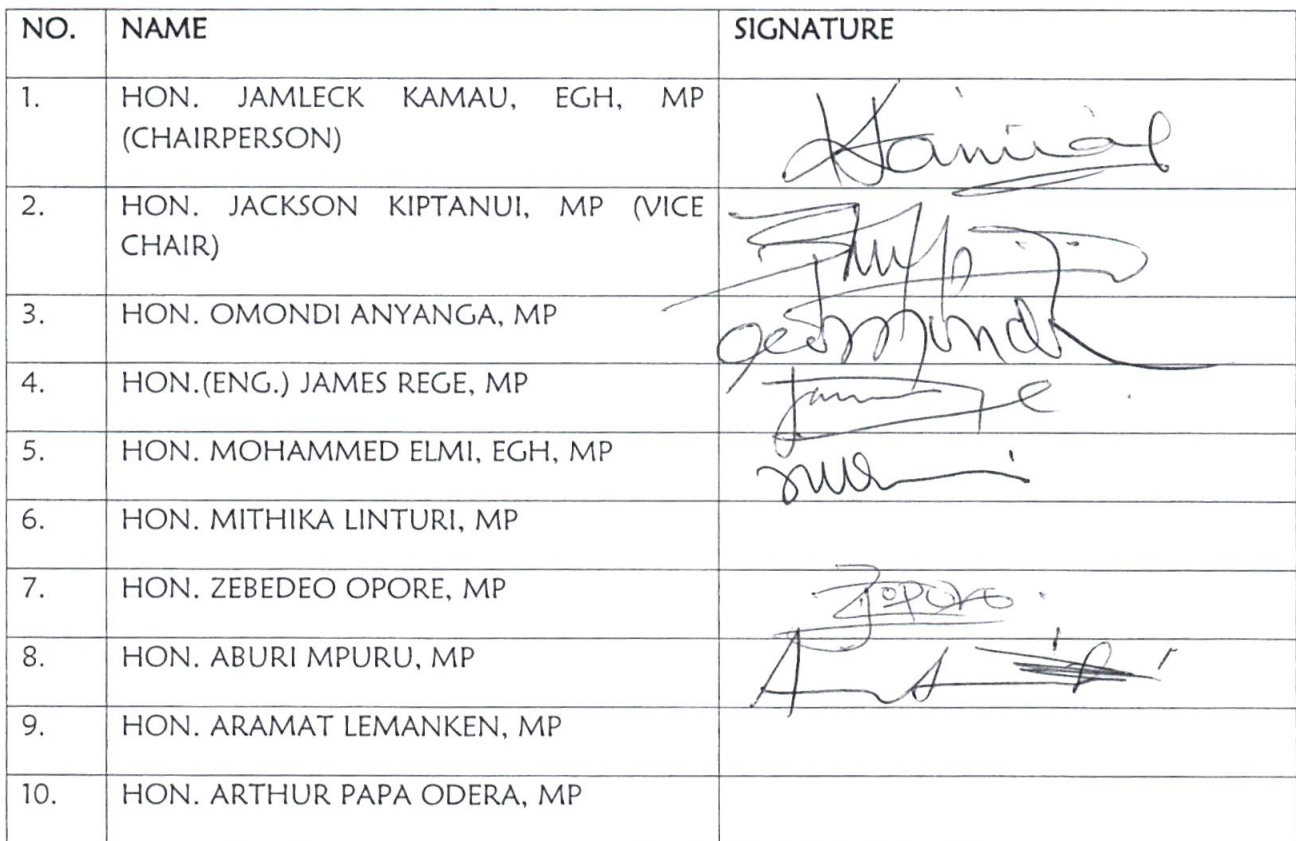 NO. NAME SIGNATURE
1. HON. JAMLECK KAMAU, EGH, MP
(CHAIRPERSON)
2. HON. JACKSON KIPTANUI, MP (VICE
CHAIR)
3. HON. OMONDI ANYANGA, MP
4. HON.(ENG.) JAMES REGE, MP
5. HON. MOHAMMED ELMI, EGH, MP
6. HON. MITHIKA LINTURI, MP
7. HON. ZEBEDEO OPORE, MP
8. HON. ABURI MPURU, MP
9. HON. ARAMAT LEMANKEN, MP
10. HON. ARTHUR PAPA ODERA, MP